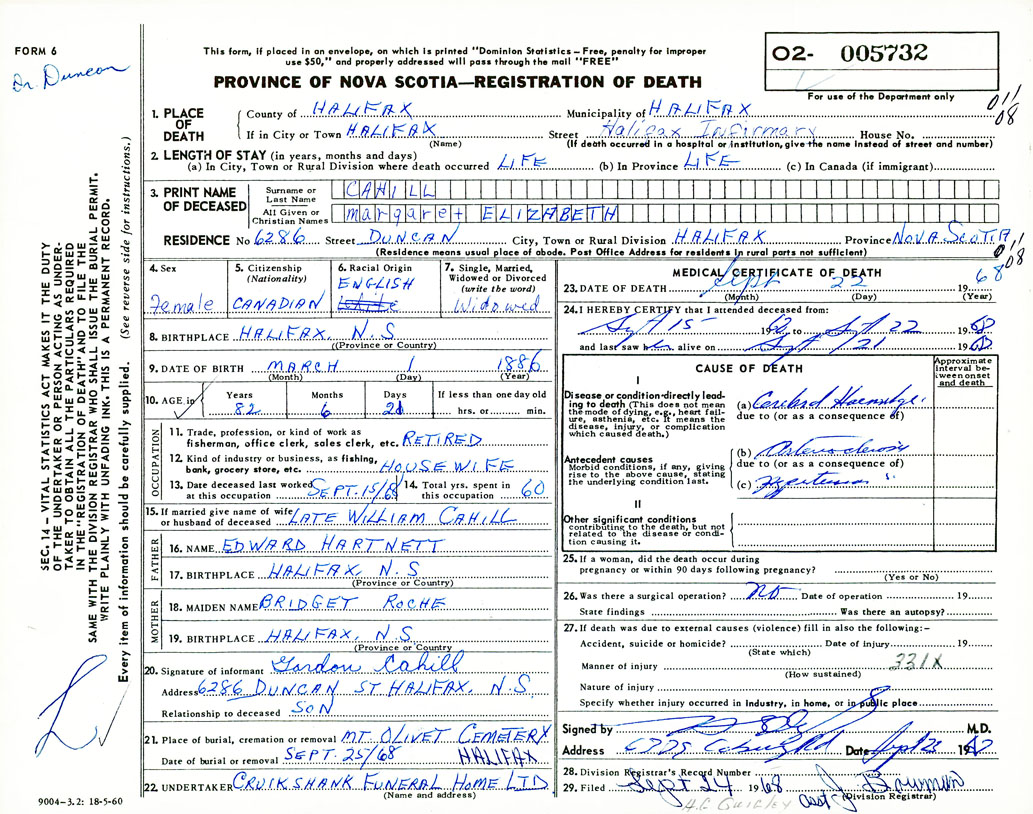 FORM 6
Dr. Duncan
This form, if placed in an envelope, on which is printed "Dominion Statistics – Free, penalty for improper
use $50," and properly addressed will pass through the mail "FREE"
PROVINCE OF NOVA SCOTIA—REGISTRATION OF DEATH
O2- 005732
For use of the Department only
011
08
SEC. 14 – VITAL STATISTICS ACT MAKES IT THE DUTY
OF THE UNDERTAKER OR PERSON ACTING AS UNDER-
TAKER TO OBTAIN ALL THE PARTICULARS REQUIRED
IN THE "REGISTRATION OF DEATH" AND TO FILE THE
SAME WITH THE DIVISION REGISTRAR WHO SHALL ISSUE THE BURIAL PERMIT.
WRITE PLAINLY WITH UNFADING INK. THIS IS A PERMANENT RECORD.
Every item of information should be carefully supplied. (See reverse side for instructions.)
1. PLACE OF DEATH
County of HALIFAX Municipality of HALIFAX
If in City or Town HALIFAX Street Halifax Infirmary House No.
(Name) (If death occurred in a hospital or institution, give the name instead of street and number)
2. LENGTH OF STAY (in years, months and days)
(a) In City, Town or Rural Division where death occurred LIFE (b) In Province LIFE (c) In Canada (if immigrant)
3. PRINT NAME OF DECEASED
Surname or Last Name CAHILL
All Given or Christian Names Margaret ELIZABETH
RESIDENCE No 6286 Street DUNCAN City, Town or Rural Division HALIFAX Province NOVA SCOTIA
(Residence means usual place of abode. Post Office Address for residents in rural parts not sufficient)
011
08
4. Sex Female
5. Citizenship (Nationality) CANADIAN
6. Racial Origin ENGLISH White
7. Single, Married, Widowed or Divorced (write the word) Widowed
8. BIRTHPLACE HALIFAX, N.S
(Province or Country)
9. DATE OF BIRTH MARCH 1 1886
(Month) (Day) (Year)
10. AGE in Years 82 Months 6 Days 21 If less than one day old hrs. or min.
OCCUPATION
11. Trade, profession, or kind of work as
fisherman, office clerk, sales clerk, etc. RETIRED
12. Kind of industry or business, as fishing,
bank, grocery store, etc. HOUSEWIFE
13. Date deceased last worked at this occupation SEPT. 15/68 14. Total yrs. spent in this occupation 60
15. If married give name of wife
or husband of deceased LATE WILLIAM CAHILL
FATHER
16. NAME EDWARD HARTNETT
17. BIRTHPLACE HALIFAX, N.S
(Province or Country)
MOTHER
18. MAIDEN NAME BRIDGET ROCHE
19. BIRTHPLACE HALIFAX, N.S
(Province or Country)
20. Signature of informant Gordon Cahill
Address 6286 DUNCAN ST HALIFAX, N.S.
Relationship to deceased SON
21. Place of burial, cremation or removal MT. OLIVET CEMETERY
Date of burial or removal SEPT. 25/68 HALIFAX
22. UNDERTAKER CRUIKSHANK FUNERAL HOME LTD
(Name and address)
9004–3.2: 18-5-60
MEDICAL CERTIFICATE OF DEATH
23. DATE OF DEATH Sept 22 1968
(Month) (Day) (Year)
24. I HEREBY CERTIFY that I attended deceased from:
Sept 15 1968 to Sept 22 1968
and last saw her alive on Sept 21 1968
CAUSE OF DEATH
Approximate interval between onset and death
I
Disease or condition directly lead-
ing to death (This does not mean
the mode of dying, e.g., heart fail-
ure, asthenia, etc. It means the
disease, injury, or complication
which caused death.)
(a) Cerebral Haemorrhage
due to (or as a consequence of)
Antecedent causes
Morbid conditions, if any, giving
rise to the above cause, stating
the underlying condition last.
(b) Arteriosclerosis
due to (or as a consequence of)
(c) Hypertension
II
Other significant conditions
contributing to the death, but not
related to the disease or condi-
tion causing it.
25. If a woman, did the death occur during
pregnancy or within 90 days following pregnancy?
(Yes or No)
26. Was there a surgical operation? No Date of operation 19
State findings Was there an autopsy?
27. If death was due to external causes (violence) fill in also the following:–
Accident, suicide or homicide? Date of injury 19
(State which)
Manner of injury 331X
(How sustained)
Nature of injury
Specify whether injury occurred in industry, in home, or in public place
Signed by M.D.
Address Rd. Date Sept 23 1968
28. Division Registrar's Record Number
29. Filed Sept 24 1968 asst J Bauman
(Division Registrar)